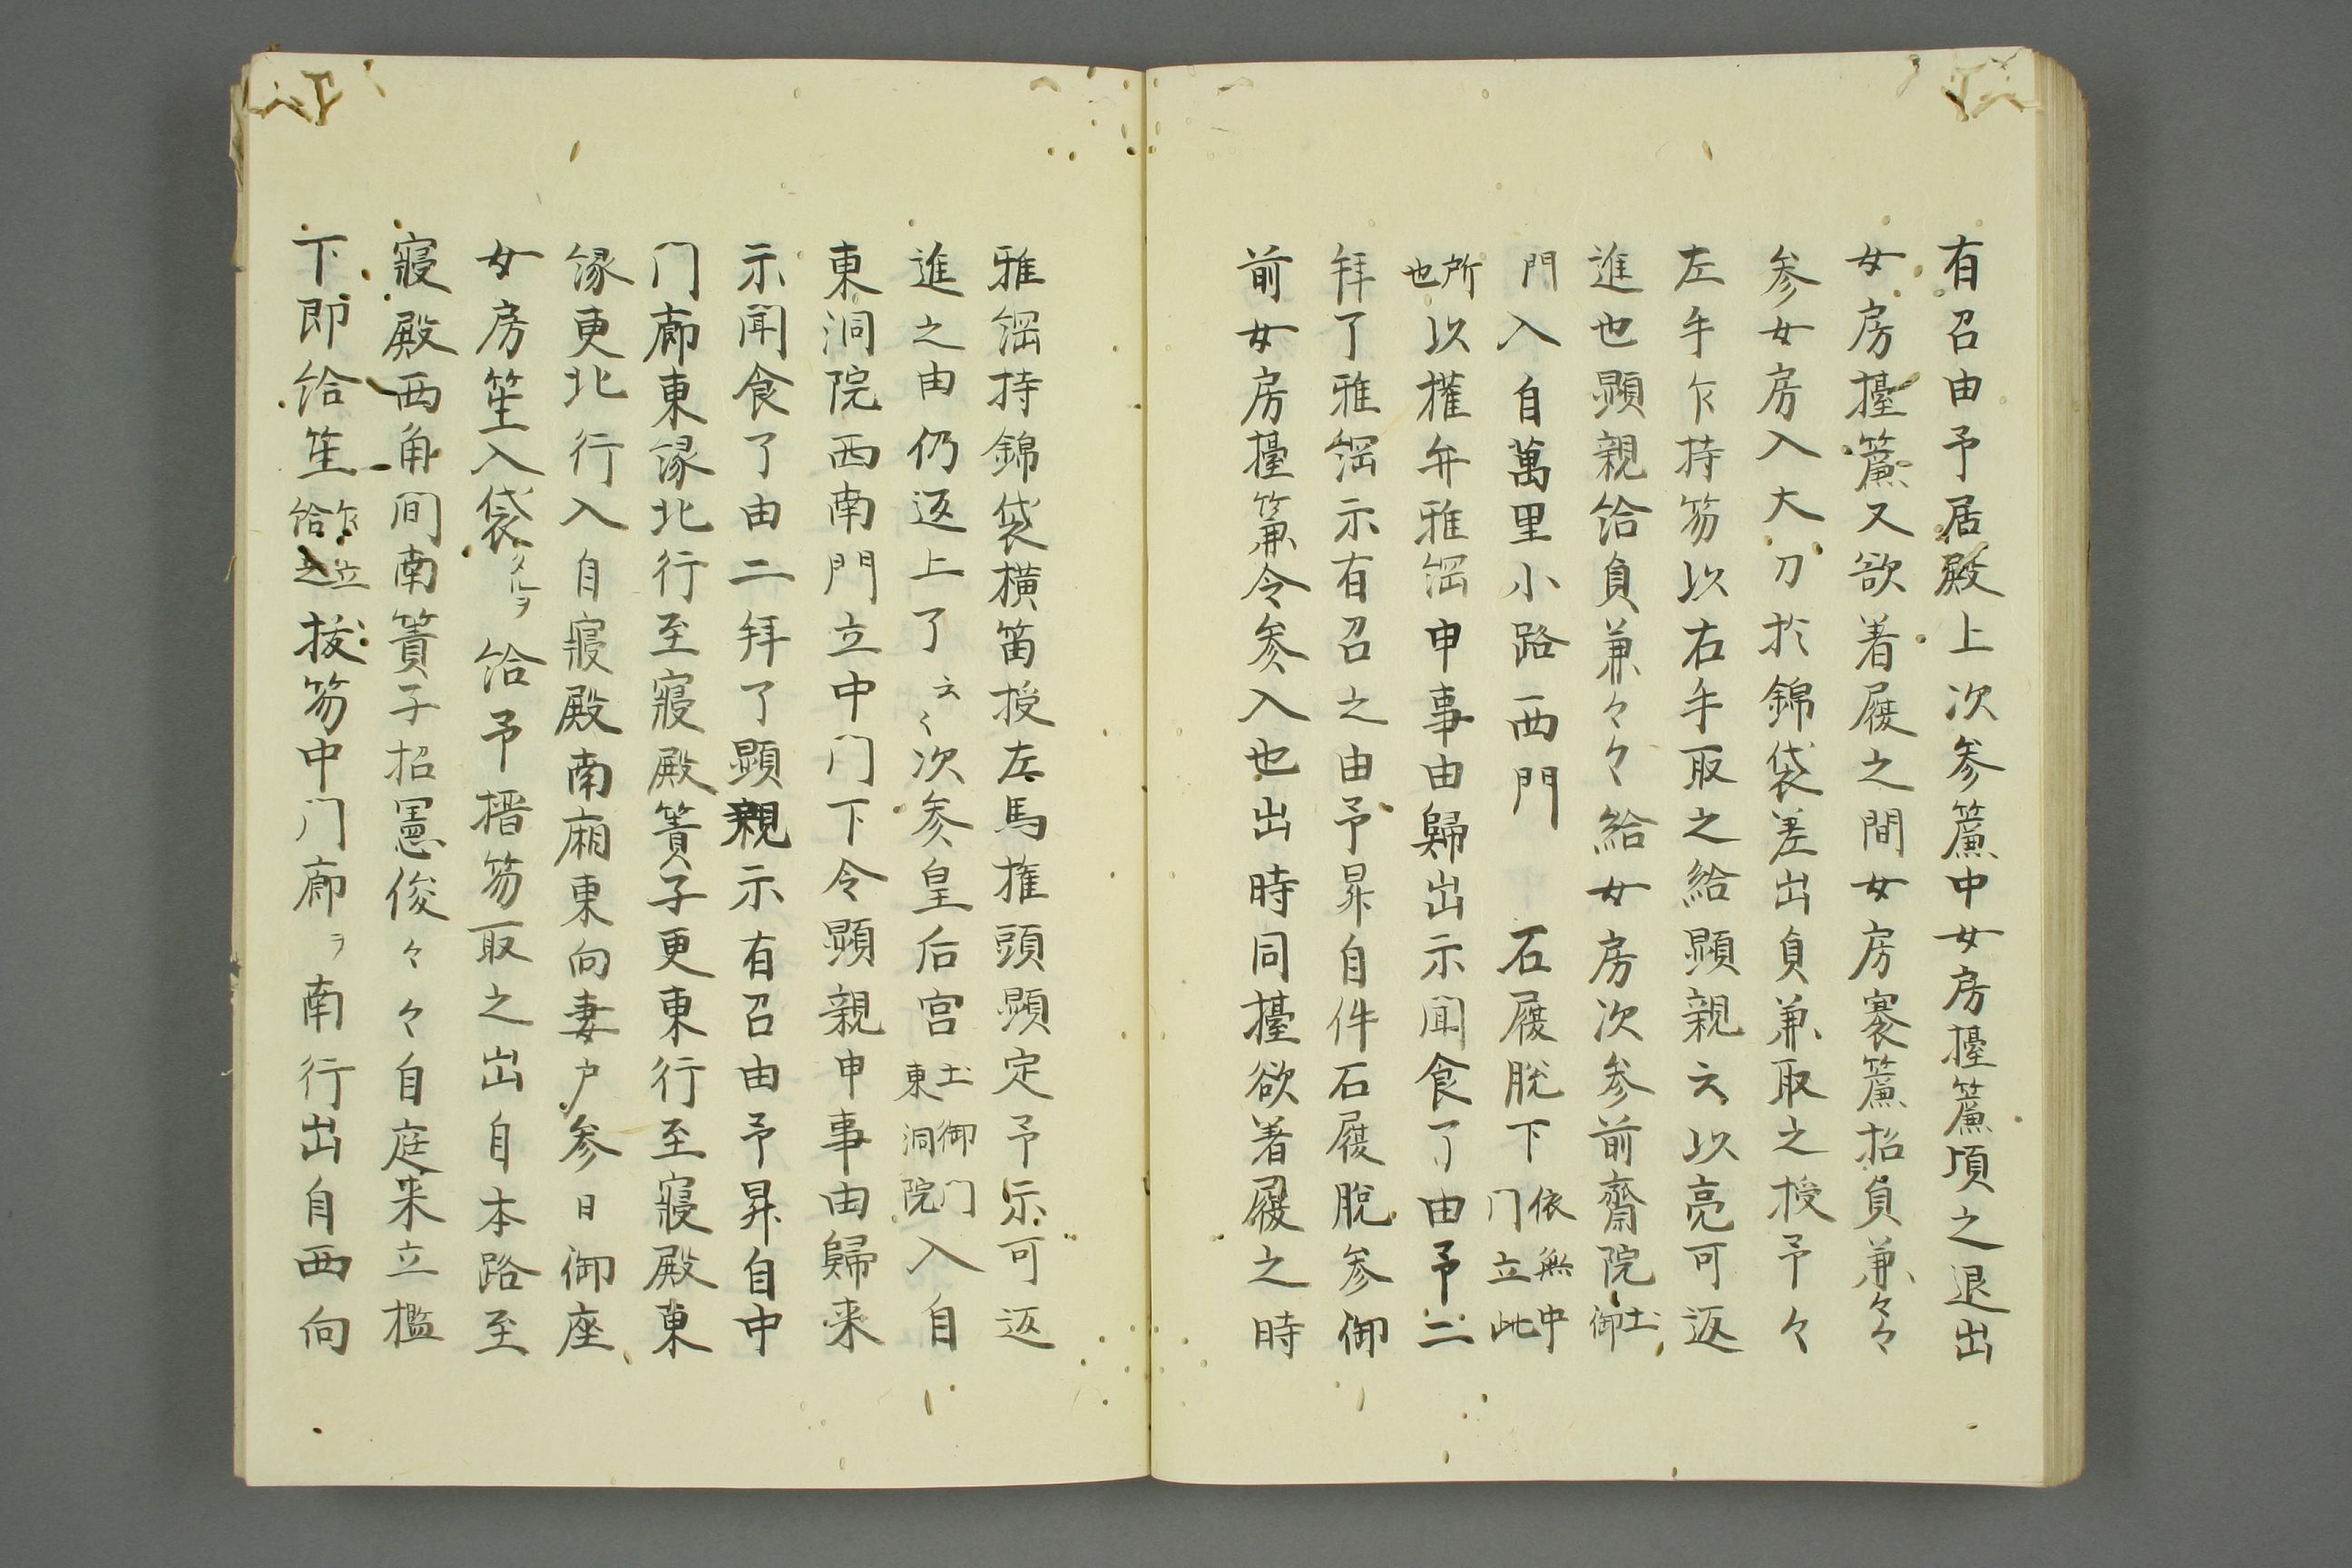 有召由予居殿上次参簾中女房擡簾頃之退出
女房擡簾又欲着履之間女房褰簾招負兼々々
参女房入大刀於錦袋差出負兼取之授予々
左手乍持笏以右手取之給顕親云以亮可返
進也顕親給負兼々々給女房次参前齋院土御
門入自萬里小路西門 石履脱下依無中門立此
所也以権弁雅綱申事由歸出示聞食了由予二
拜了雅綱示有召之由予昇自件石履脱参御
前女房擡簾令参入也出時同擡欲着履之時
雅綱持錦袋横笛授左馬権頭顕定予示可返
進之由仍返上了云々次参皇后宮土御门東洞院入自
東洞院西南門立中门下令顕親申事由歸来
示聞食了由二拜了顕親示有召由予昇自中
门廊東縁北行至寝殿簀子更東行至寝殿東
縁更北行入自寝殿南廂東向妻戸参日御座
女房笙入袋タルヲ給予搢笏取之出自本路至
寝殿西角间南簀子招憲俊々々自庭来立檻
下即給笙乍立給之抜笏中门廊ヲ南行出自西向